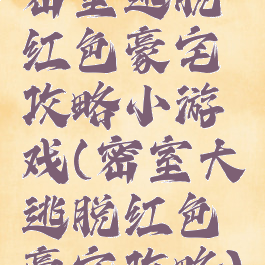 密室逃脱
红色豪宅
攻略小游
戏(密室大
逃脱红色
豪宅攻略)